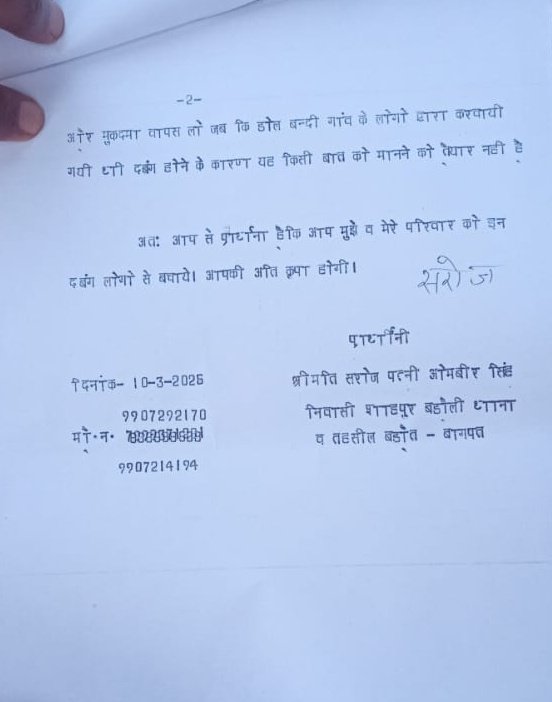 -2-
और मुकदमा वापस लो जब कि डोल बन्दी गांव के लोगो द्वारा करवायी
गयी थी दबंग होने के कारण यह किसी बात को मानने को तैयार नही है
अतः आप से प्रार्थाना हैकि आप मुझे व मेरे परिवार को इन
दबंग लोगो से बचाये। आपकी अति कृपा होगी।
सरोज
प्रार्थीनी
दिनांक- 10-3-2025
श्रीमति सरोज पत्नी ओमबीर सिंह
9907292170
निवासी शाहपुर बडोली थाना
मो.न.
व तहसील बडौत - बागपत
9907214194